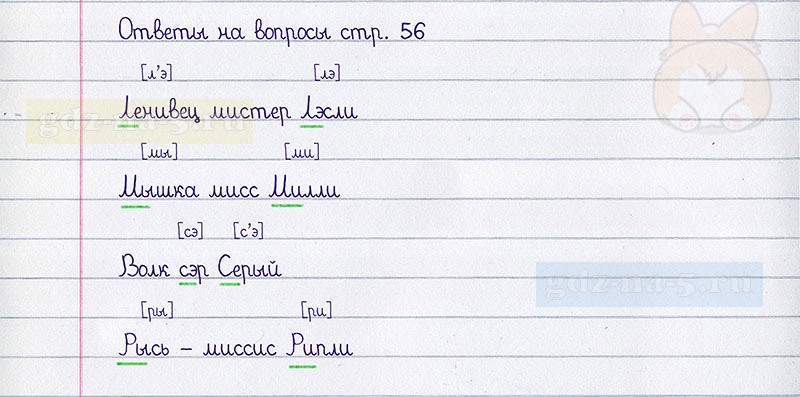 Ответы на вопросы стр. 56
[л’э] [лэ]
Ленивец мистер Лэсли
gdz-na-5.ru
[мы] [ми]
Мышка мисс Милли
[сэ] [с’э]
Волк сэр Серый
gdz-na-5.ru
[ры] [ри]
Рысь – миссис Рипли